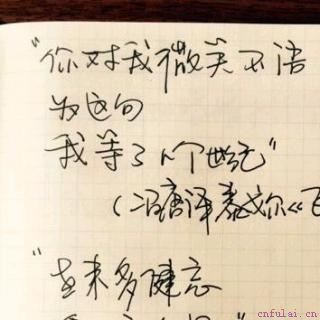 "你对我微笑不语
为这句
我等了几个世纪"
(冯唐译泰戈尔《飞
"近来多健忘
cnfulai.cn